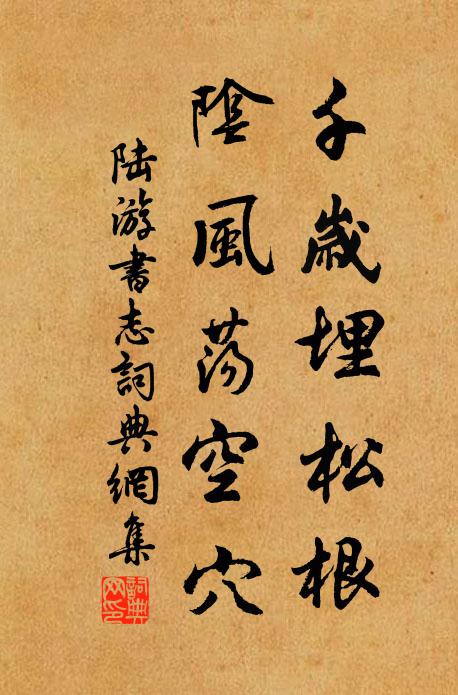 千歲埋松根
陰風蕩空穴
陸游書志詞典網集
詞典網印